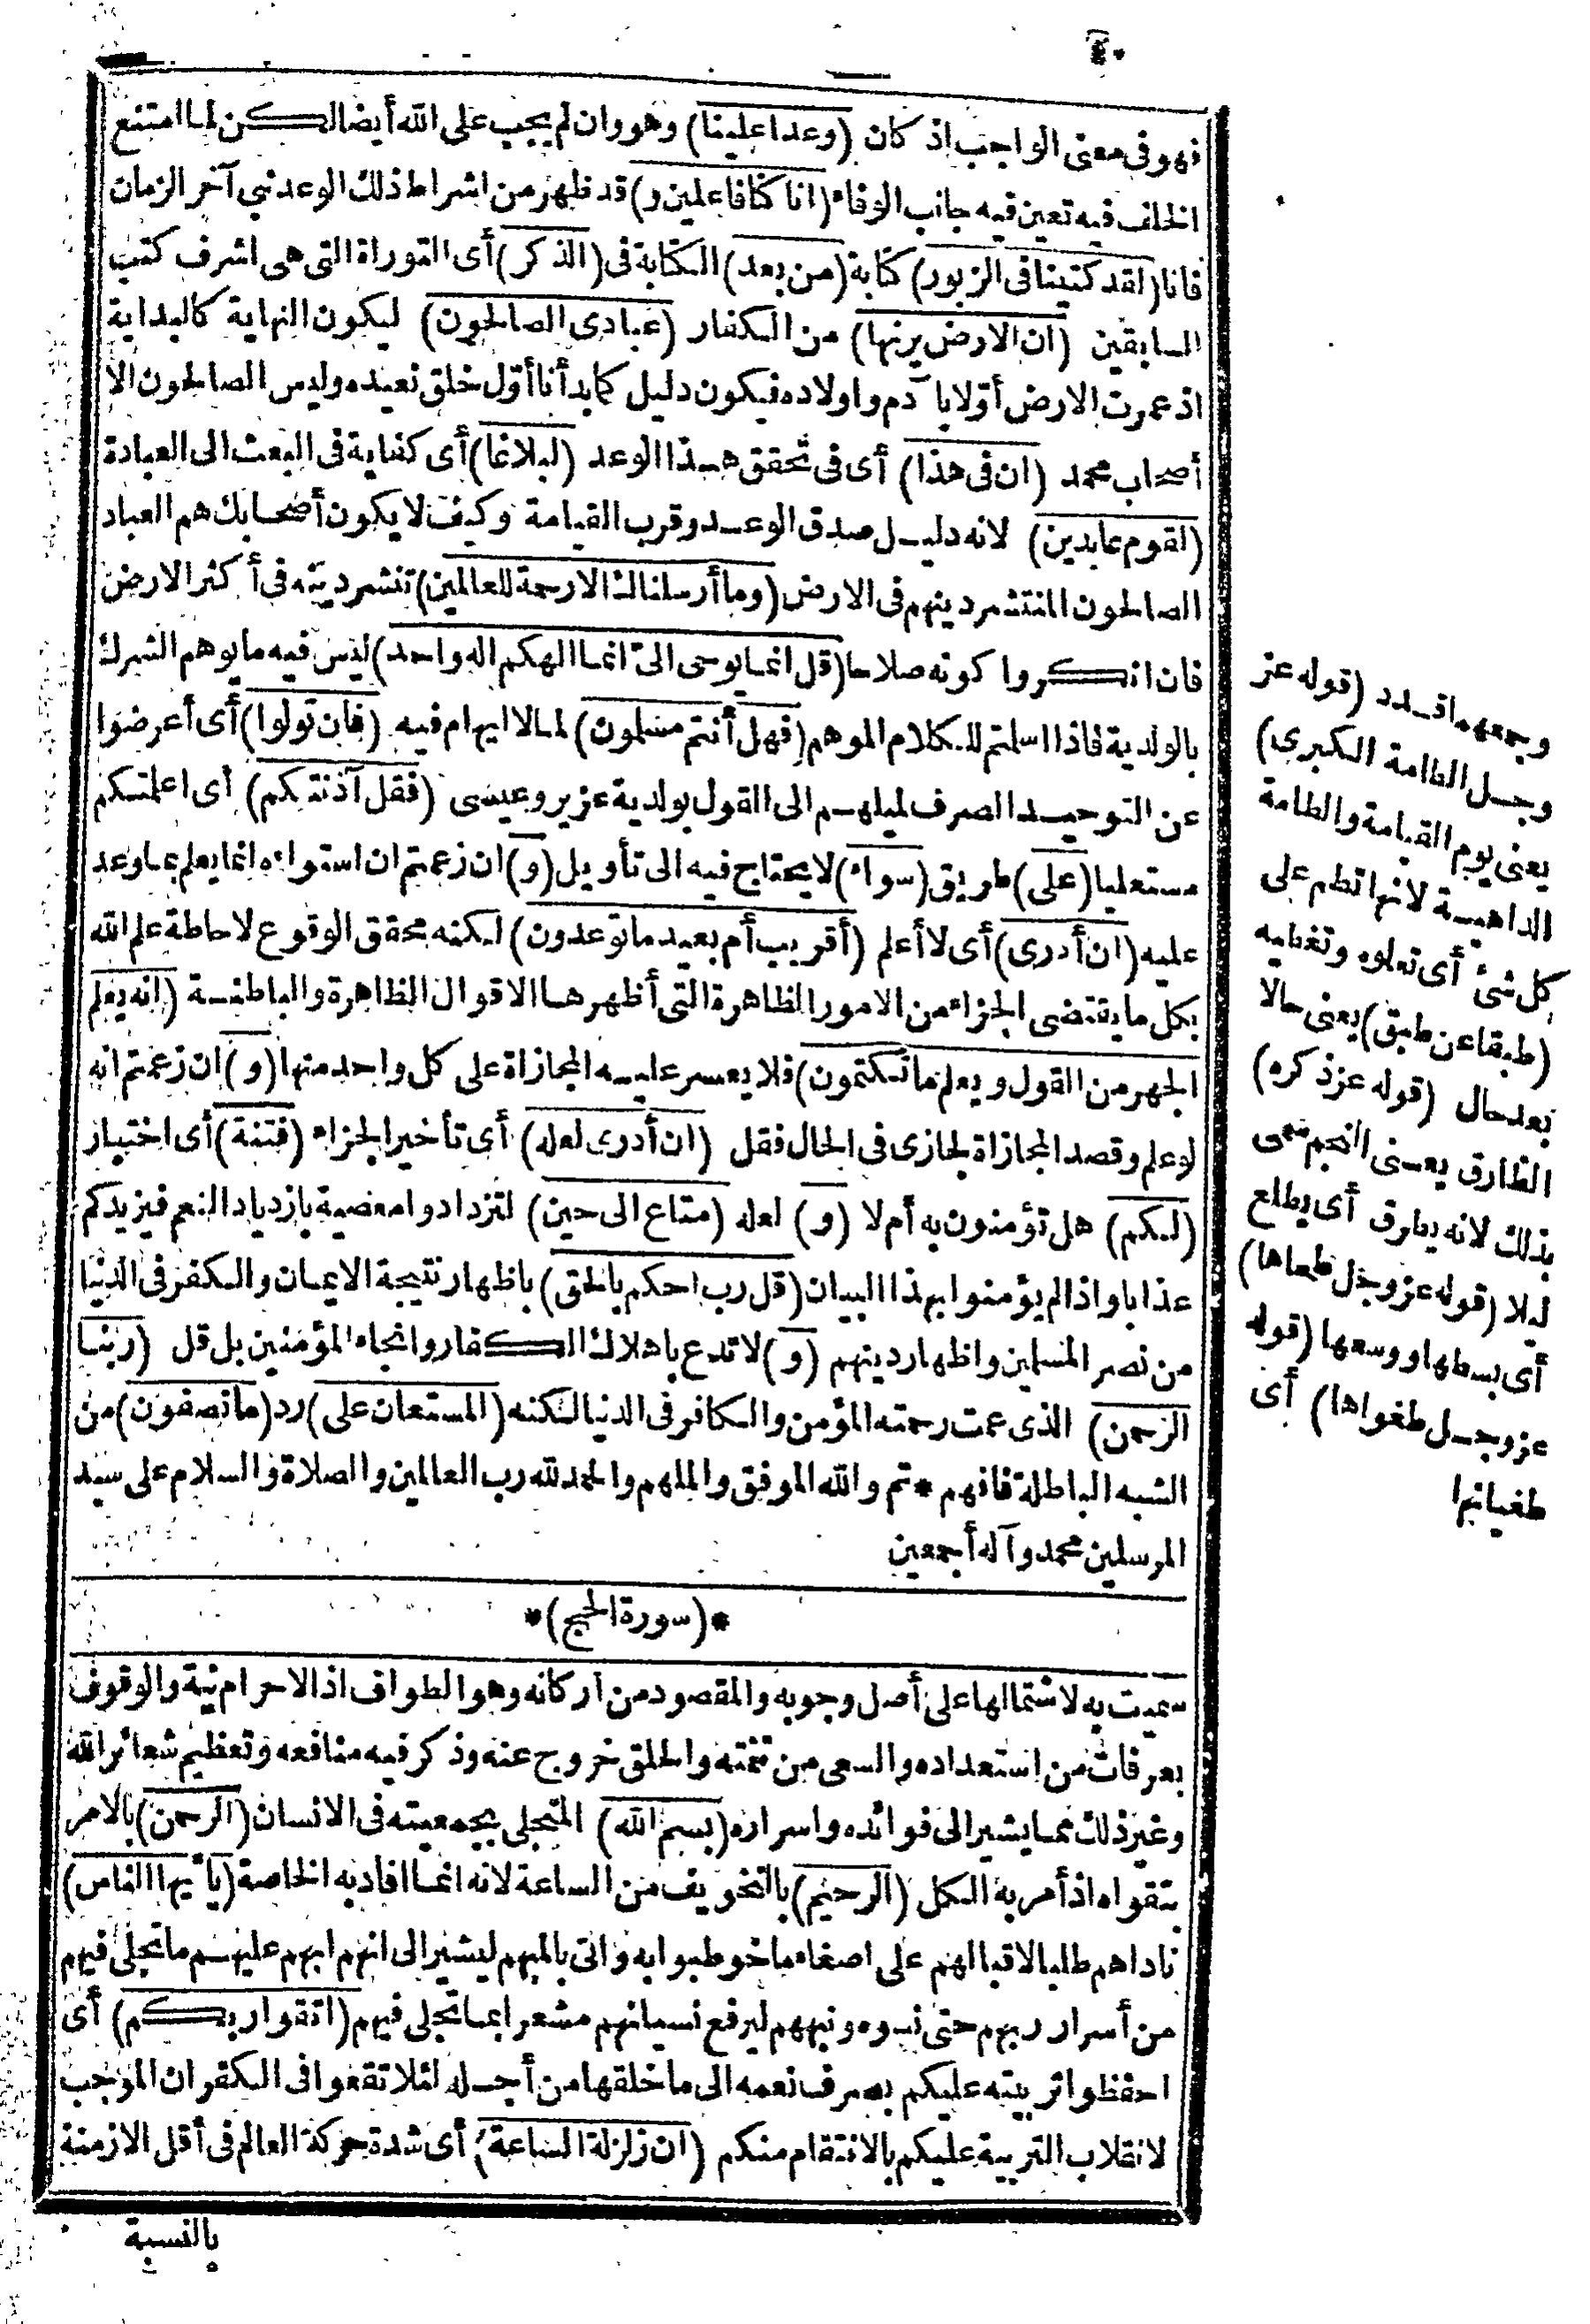 ٤٠
فهو في معنى الواجب اذ كان (وعدا علينا) وهو وان لم يجب على الله أيضا لكن لما امتنع
الخلف فيه تعين فيه جانب الوفاء (انا كنا فاعلين و) قد ظهر من اشراط ذلك الوعد نبي آخر الزمان
فانا (لقد كتبنا في الزبور) كتابة (من بعد) الكتابة في (الذكر) أى التوراة التي هى اشرف كتب
السابقين (ان الارض يرثها) من الكفار (عبادى الصالحون) ليكون النهاية كالبداية
اذ عمرت الارض أولا بآدم واولاده فيكون دليل كما بدأنا أول خلق نعيده وليس الصالحون الا
أصحاب محمد (ان في هذا) أى في تحقق هذا الوعد (لبلاغا) أى كفاية في البعث الى العبادة
(لقوم عابدين) لانه دليل صدق الوعد وقرب القيامة وكيف لا يكون أصحابك هم العباد
الصالحون المنتشر دينهم في الارض (وما أرسلناك الا رحمة للعالمين) تنشر دينه في أكثر الارض
فان انكروا كونه صلاحا (قل انما يوحى الىّ انما الهكم اله واحد) ليس فيه ما يوهم الشرك
بالولدية فاذا اسلتم للكلام الموهم (فهل أنتم مسلمون) لما لا ايهام فيه (فان تولوا) أى أعرضوا
عن التوحيد الصرف لميلهم الى القول بولدية عزير وعيسى (فقل آذنتكم) أى اعلمتكم
مستعليا (على) طريق (سواء) لا يحتاج فيه الى تأويل (و) ان زعمتم ان استواءه انما يعلم بما وعد
عليه (ان أدرى) أى لا أعلم (أقريب أم بعيد ما توعدون) لكنه محقق الوقوع لاحاطة علم الله
بكل ما يقتضى الجزاء من الامور الظاهرة التي أظهرها الاقوال الظاهرة والباطنة (انه يعلم
الجهر من القول ويعلم ما تكتمون) فلا يعسر عليه المجازاة على كل واحد منها (و) ان زعمتم انه
لو علم وقصد المجازاة لجازى في الحال فقل (ان أدرى لعله) أى تأخير الجزاء (فتنة) أى اختبار
(لكم) هل تؤمنون به أم لا (و) لعله (متاع الى حين) لتزدادوا معصية بازدياد النعم فيزيدكم
عذابا واذا لم يؤمنوا بهذا البيان (قل رب احكم بالحق) باظهار نتيجة الايمان والكفر في الدنيا
من نصر المسلمين واظهار دينهم (و) لا تدع باهلاك الكفار وانجاء المؤمنين بل قل (ربنا
الرحمن) الذى عمت رحمته المؤمن والكافر في الدنيا لكنه (المستعان على) رد (ما تصفون) من
الشبه الباطلة فافهم * تم والله الموفق والملهم والحمد لله رب العالمين والصلاة والسلام على سيد
المرسلين محمد وآله أجمعين
*(سورة الحج)*
سميت به لاشتمالها على أصل وجوبه والمقصود من اركانه وهو الطواف اذ الاحرام نية والوقوف
بعرفات من استعداده والسعى من تتمته والحلق خروج عنه وذكر فيه منافعه وتعظيم شعائر الله
وغير ذلك مما يشير الى فوائده واسراره (بسم الله) المتجلى بجمعيته في الانسان (الرحمن) بالامر
بتقواه اذ أمر به الكل (الرحيم) بالتخويف من الساعة لانه انما افاد به الخاصة (يا أيها الناس)
ناداهم طلبا لاقبالهم على اصغاء ما خوطبوا به واتى بالمبهم ليشير الى انهم ابهم عليهم ما تجلى فيهم
من أسرار ربهم حتى نسوه ونبههم ليرفع نسيانهم مشعرا بما تجلى فيهم (اتقوا ربكم) أى
احفظوا تربيته عليكم بصرف نعمه الى ما خلقها من أجله لئلا تقعوا في الكفران الموجب
لانقلاب التربية عليكم بالانتقام منكم (ان زلزلة الساعة) أى شدة حركة العالم في أقل الازمنة
بالنسبة
وجمعهما قدد (قوله عز
وجل الطامة الكبرى)
يعنى يوم القيامة والطامة
الداهية لانها تطم على
كل شئ أى تعلوه وتغطيه
(طبقا عن طبق) يعنى حالا
بعد حال (قوله عز ذكره)
الطارق يعنى النجم سمى
بذلك لانه يطرق أى يطلع
ليلا (قوله عز وجل طحاها)
أى بسطها ووسعها (قوله
عز وجل طغواها) أى
طغيانها